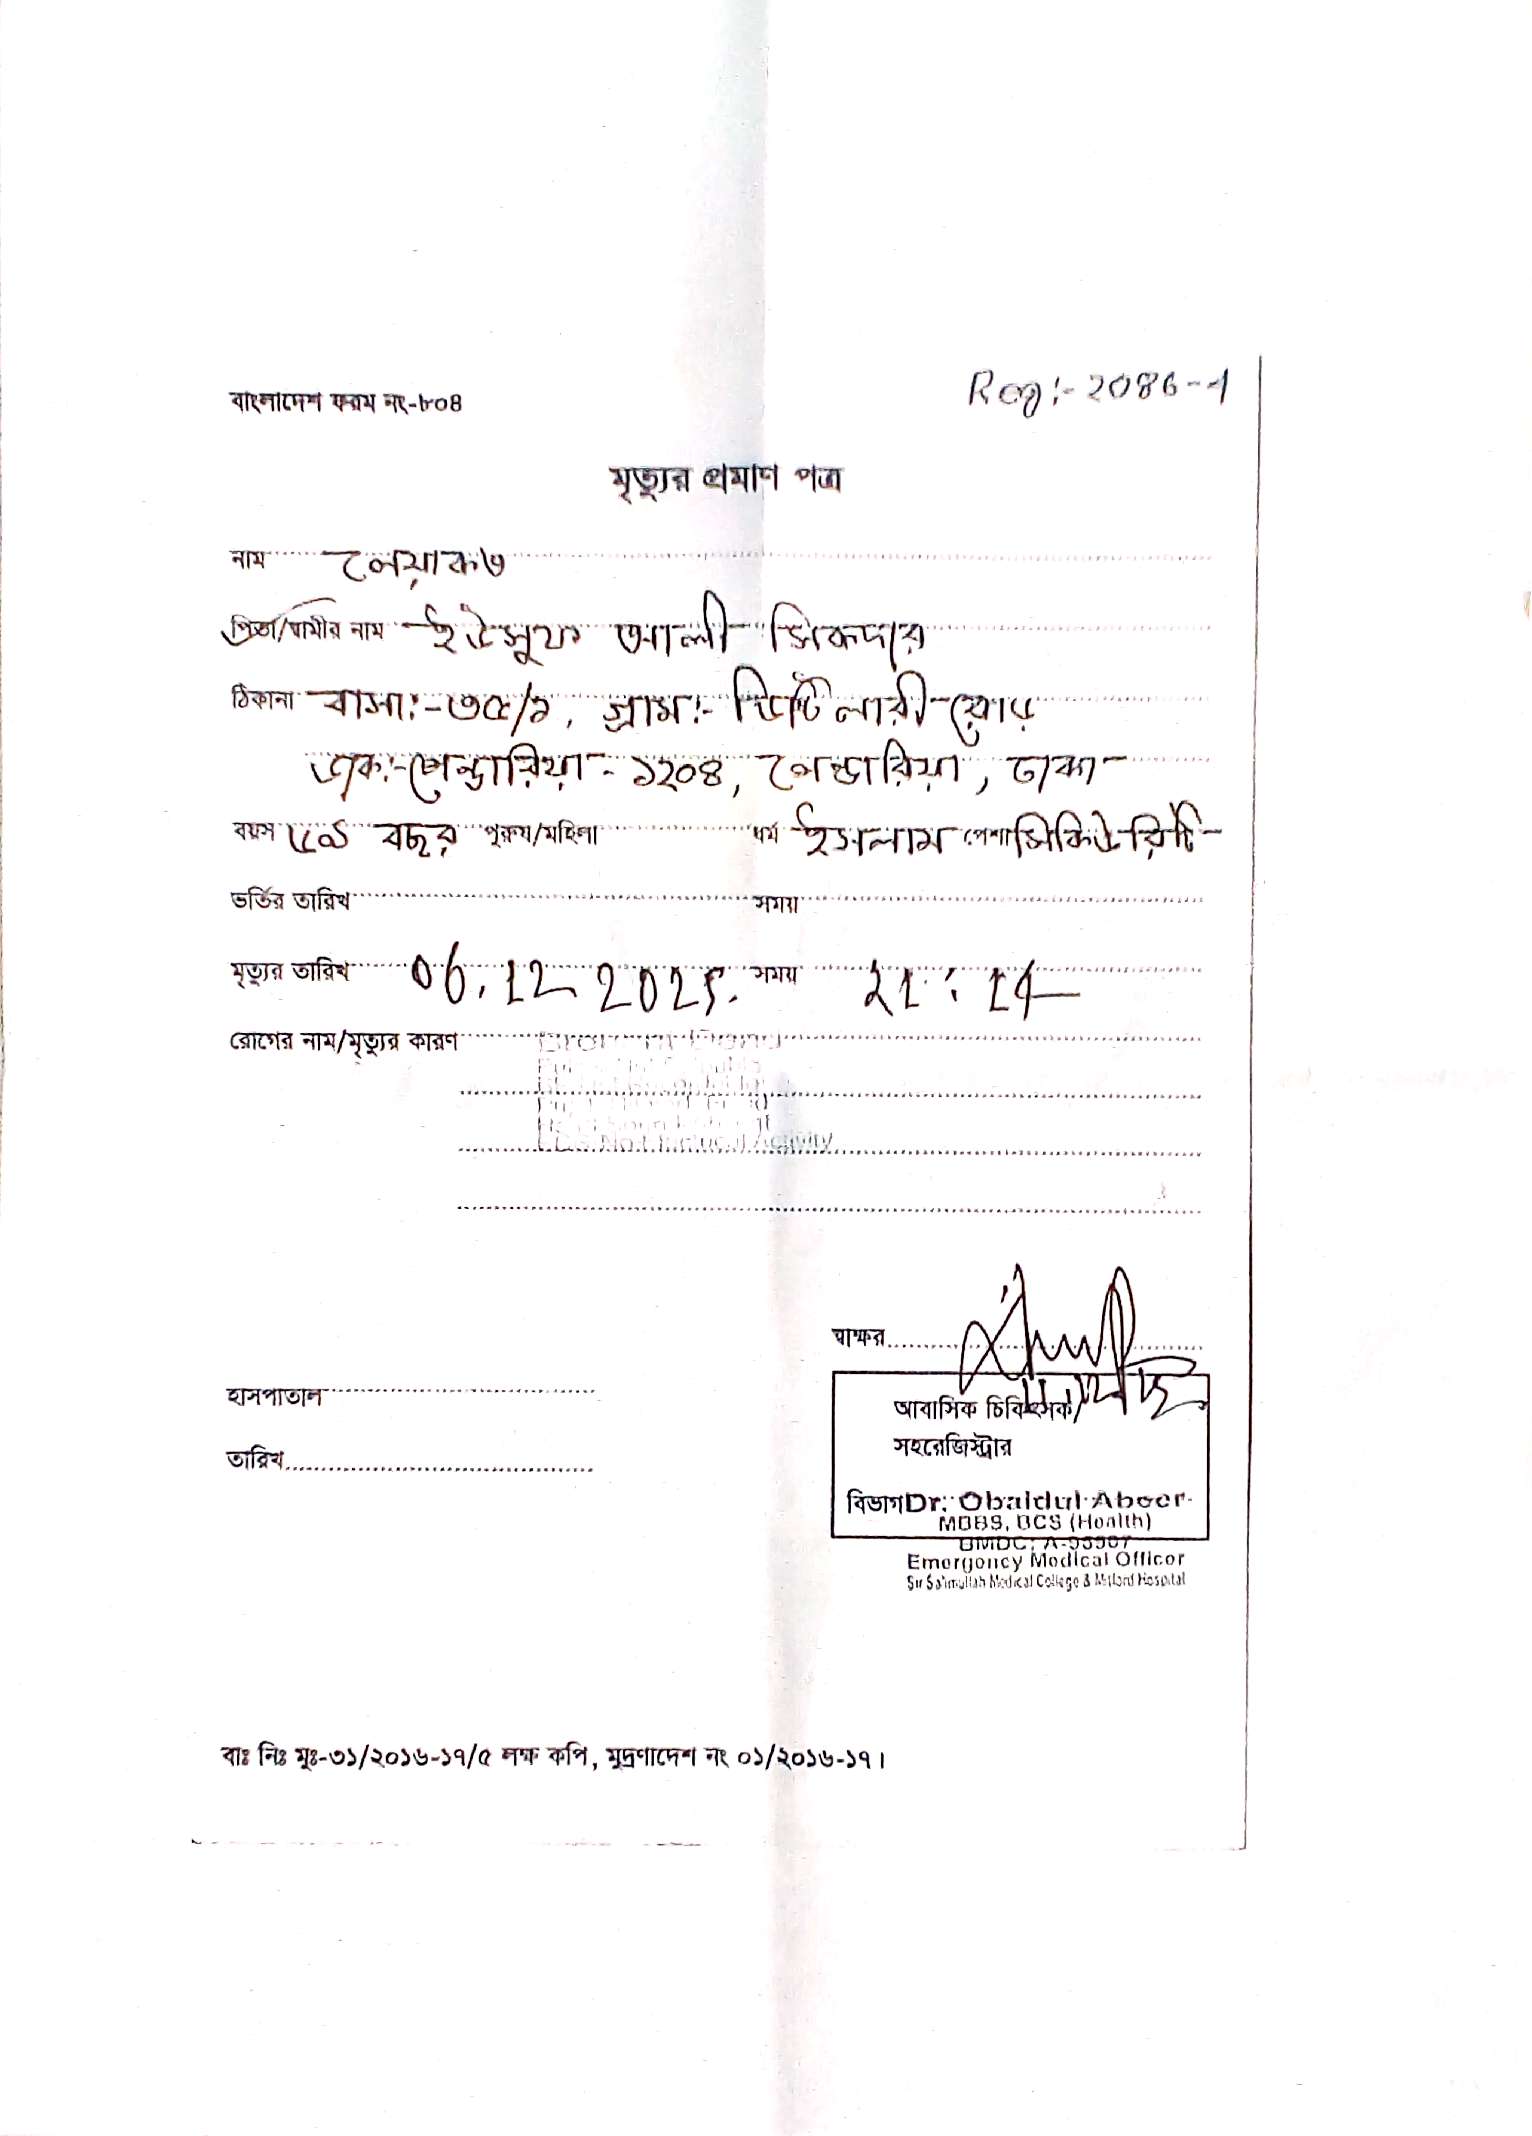 বাংলাদেশ ফরম নং-৮০৪
Reg:- 2086-1
মৃত্যুর প্রমাণ পত্র
নাম লেয়াকত
পিতা/স্বামীর নাম ইউসুফ আলী সিকদার
ঠিকানা বাসা:-৩৫/১, গ্রাম:- ডিস্টিলারী রোড
ডাক:-গেন্ডারিয়া - ১২০৪, গেন্ডারিয়া, ঢাকা
বয়স বছর পুরুষ/মহিলা ধর্ম ইসলাম পেশা সিকিউরিটি
ভর্তির তারিখ সময়
মৃত্যুর তারিখ 06.12 2025. সময় 21:14
রোগের নাম/মৃত্যুর কারণ
Activity
স্বাক্ষর
হাসপাতাল
আবাসিক চিকিৎসক/
সহরেজিস্ট্রার
তারিখ
বিভাগ Dr. Obaidul Abeer
MBBS, BCS (Health)
BMDC: A-
Emergency Medical Officer
Sir Salimullah Medical College & Mitford Hospital
বাঃ নিঃ মুঃ-৩১/২০১৬-১৭/৫ লক্ষ কপি, মুদ্রণাদেশ নং ০১/২০১৬-১৭।